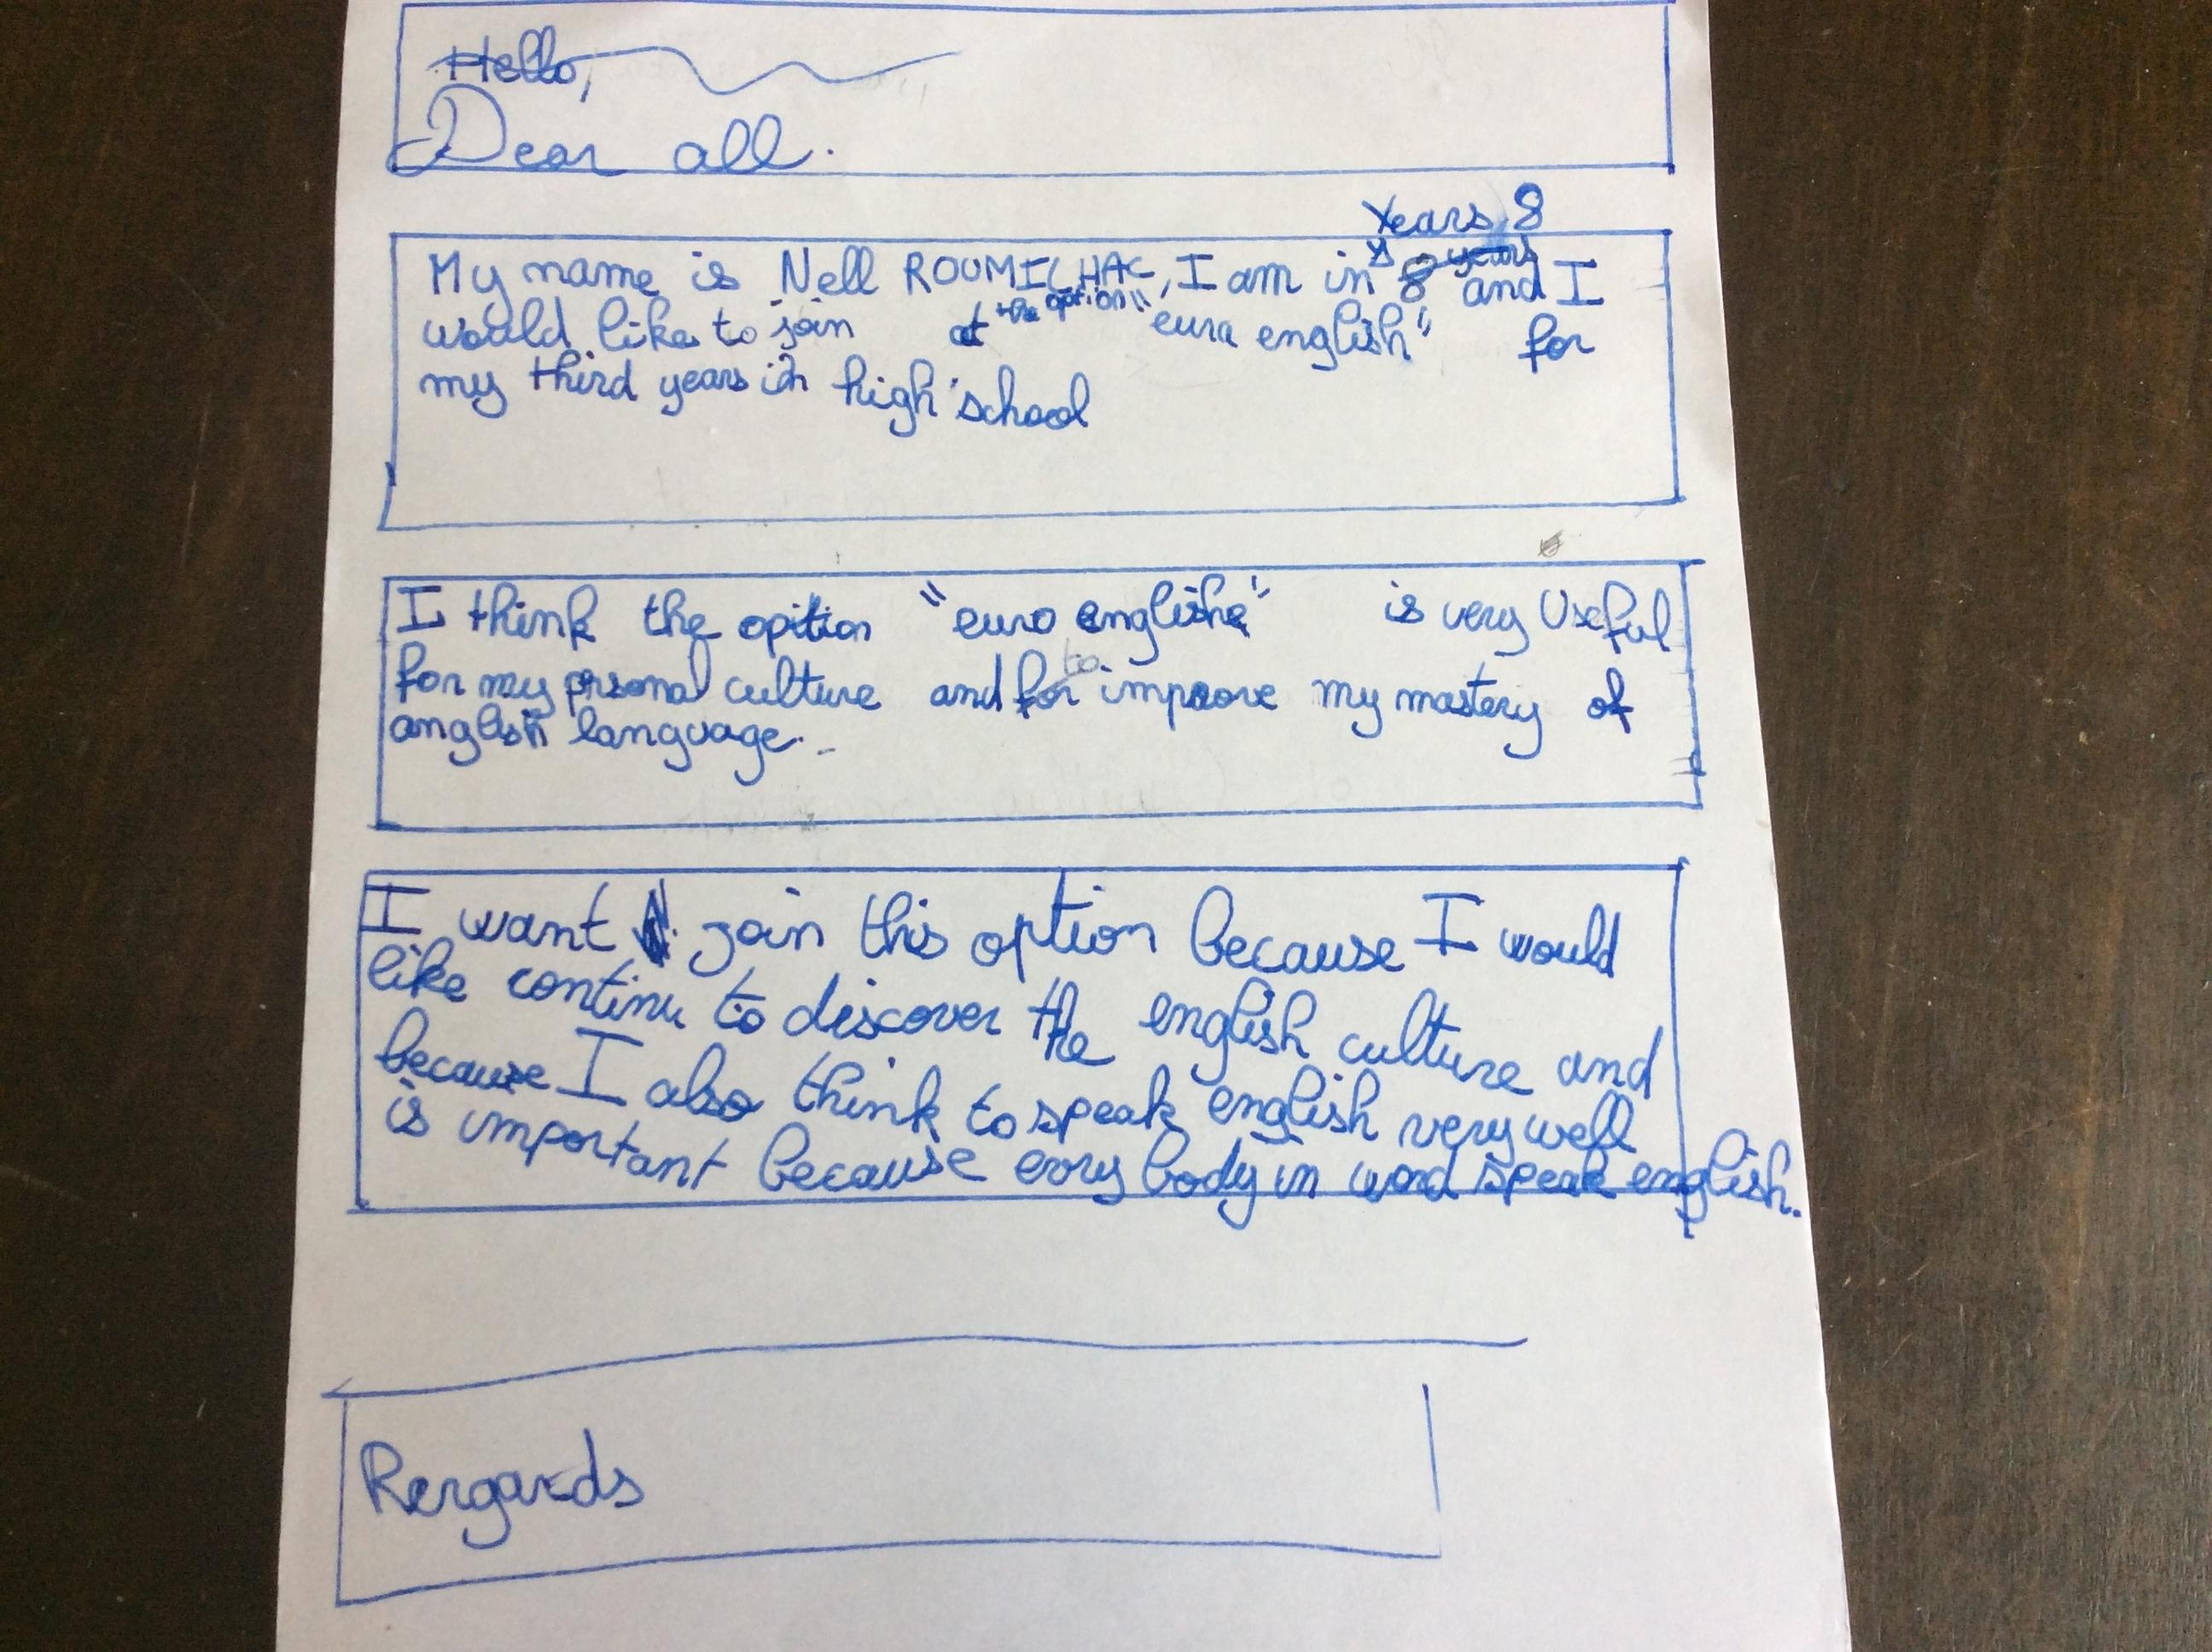 Hello,
Dear all.
Years 8
My name is Nell ROUMILHAC, I am in 8 years and I
would like to join at the option "euro english" for
my third years in high school
I think the opition "euro englishe" is very Useful
for my prsonal culture and for to improve my mastery of
anglish language.
I want join this option because I would
like continu to discover the english culture and
because I also think to speak english very well
is important because evry body in word speak english.
Rergards